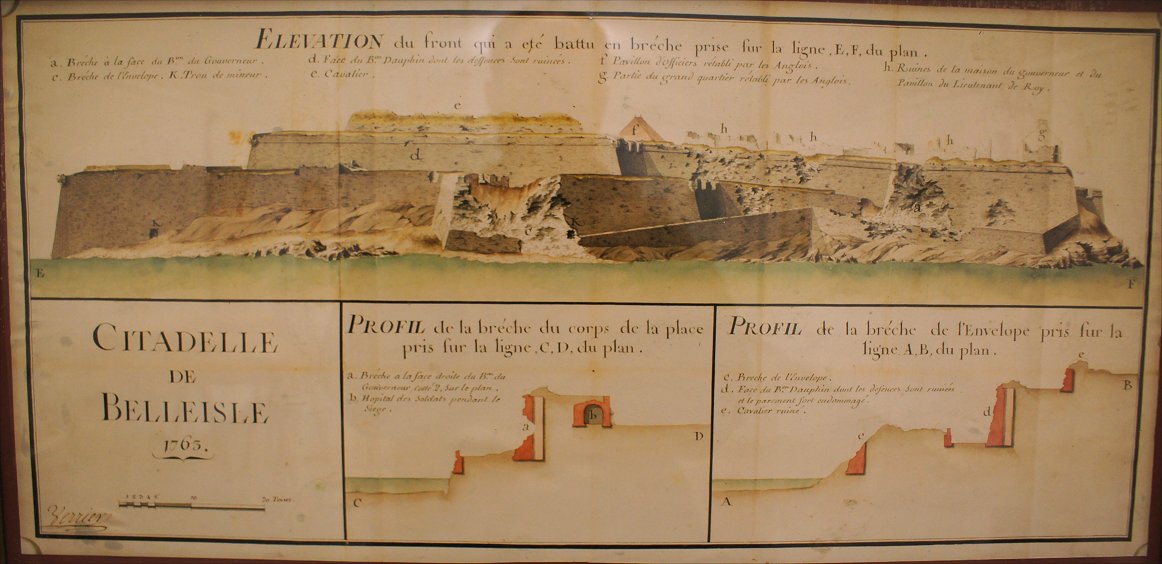 ELEVATION du front qui a eté battu en bréche prise sur la ligne, E, F, du plan.
a. Bréche à la face du B.on du Gouverneur.
c. Bréche de l'Envelope. K. Trou de mineur.
d. Face du B.on Dauphin dont les deffences sont ruinées.
e. Cavalier.
f Pavillon d'Officiers rétabli par les Anglois.
g. Partie du grand quartier rétabli par les Anglois.
h. Ruines de la maison du gouverneur et du
Pavillon du Lieutenant de Roy.
e
f
h
h
h
g
d
a
K
K
c
E
F
CITADELLE
DE
BELLEISLE
1763.
PROFIL de la bréche du corps de la place
pris sur la ligne, C, D, du plan.
a. Bréche a la face droite du B.on du
Gouverneur, cotté 2, sur le plan.
b. Hopital des Soldats pendant le
Siege.
b
a
D
C
PROFIL de la bréche de l'Envelope pris sur la
ligne A, B, du plan.
c. Breche de l'Envelope.
d. Face du B.on Dauphin dont les defences sont ruinées
et le parement fort endommagé.
e. Cavalier ruiné.
e
B
d
c
A